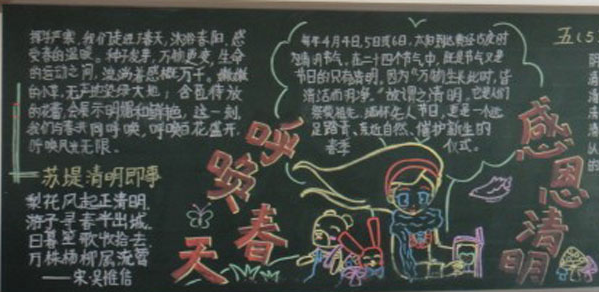 挥手严寒,我们走进了春天,沐浴春阳,感
受春的温暖。种子发芽,万物更变,生命
的运动之间,流淌着思绪万千。嫩嫩
的小草,无声地染绿大地;含苞待放
的花蕾,会展示明媚和鲜艳,这一刻,
我们与春共同呼唤,呼唤百花盛开,
呼唤风光无限。
苏堤清明即事
梨花风起正清明,
游子寻春半出城。
日暮笙歌收拾去,
万株杨柳属流莺
——宋 吴惟信
呼唤春天
每年4月4日,5日或6日,太阳到达黄经15度时
为清明节气。在二十四个节气中,既是节气又是
节日的只有清明,因为"万物生长此时,皆
清洁而明净。"故谓之清明,它是人们
祭奠祖先,缅怀先人节日,更是一个远
足踏青、亲近自然、催护新生的
春季 仪式。
感恩清明
五(5)